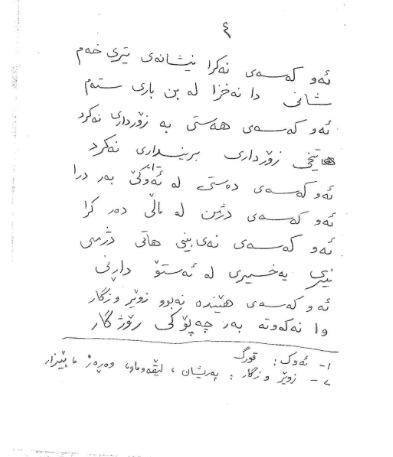 ٤
ئەو کەسەی نەکرا نیشانەی تیری خەم
شانی دا نەخزا لە بن باری ستەم
ئەو کەسەی هەستی بە زۆرداری نەکرد
تیخی زۆرداری برینداری نەکرد
ئەو کەسەی دەستی لە ئەوکێ بەر درا
ئەو کەسەی دژمن لە ماڵی دەر کرا
ئەو کەسەی نەی بینی هاتی دژمنی
نیری یەخسیری لە ئەستۆ داڕنی
ئەو کەسەی هێندە نەبوو زوێر و زگار
وا نەکەوتە بەر چەپۆکی ڕۆژگار
١- ئەوک: قورگ
٢- زوێر و زگار: پەرێشان، لێقەوماو، وەڕەز، بێزار